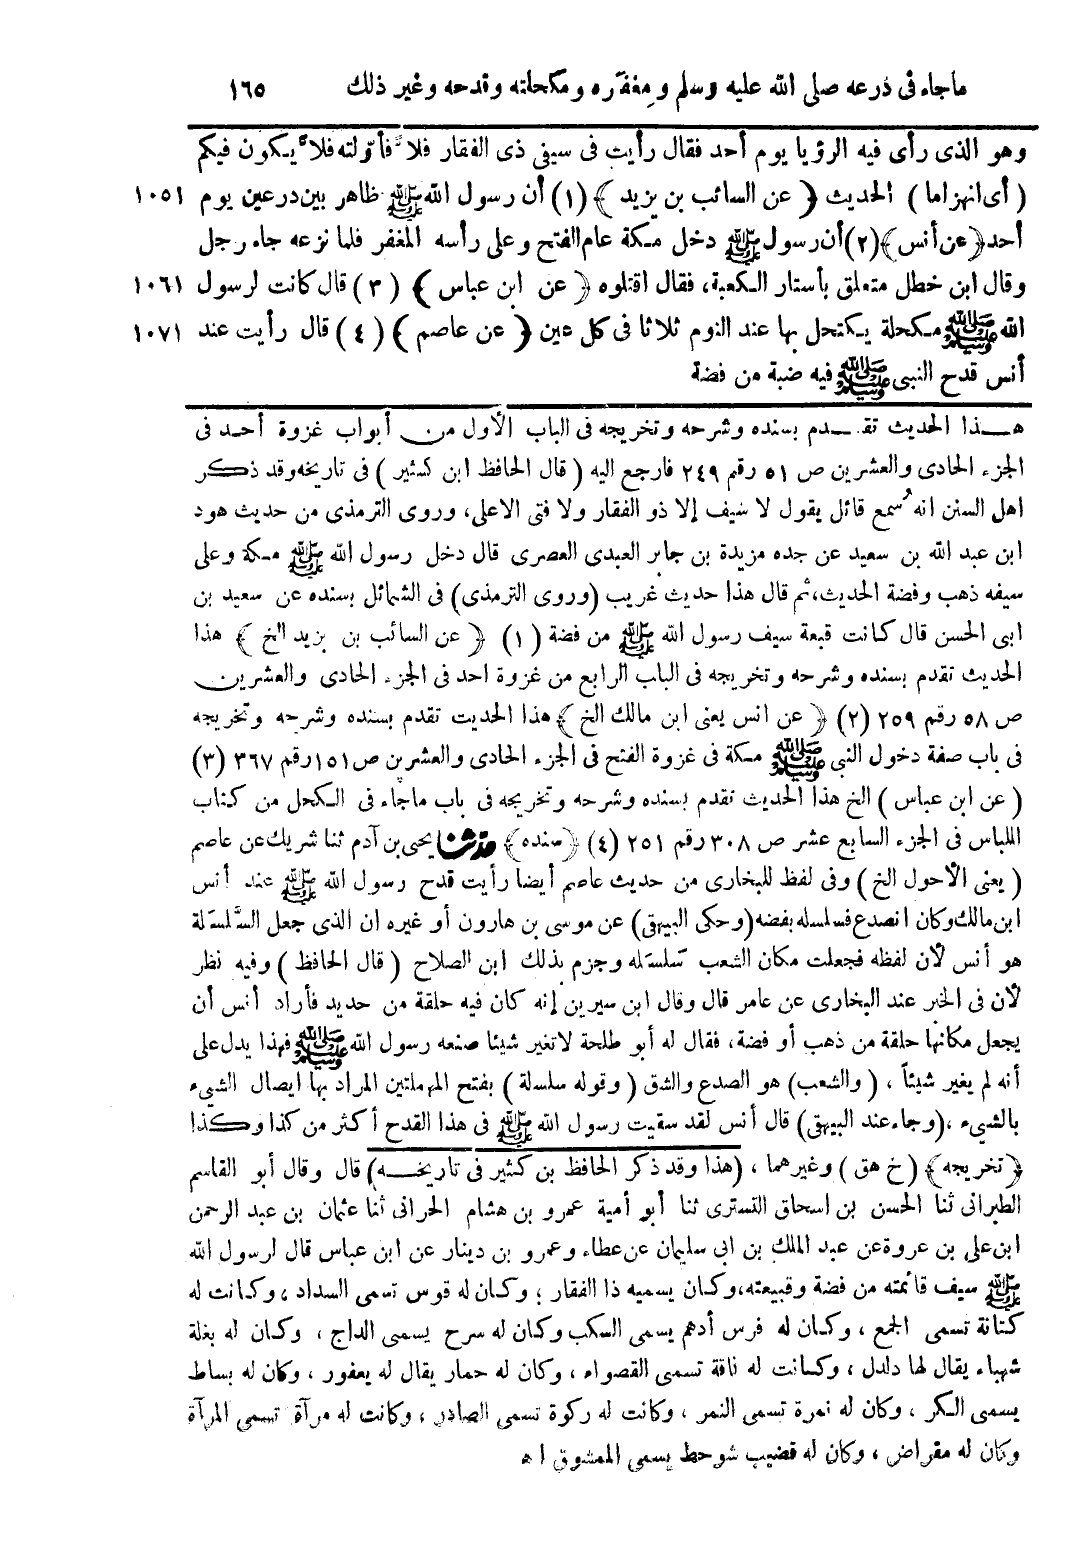 ماجاء فى درعه صلى الله عليه وسلم ومغفره ومكحلته وقدحه وغير ذلك ١٦٥
وهو الذى رأى فيه الرؤيا يوم أحد فقال رأيت فى سيفى ذى الفقار فلا فأولته فلا يكون فيكم
( أى انهزاما ) الحديث ﴿ عن السائب بن يزيد ﴾ (١) أن رسول الله ﷺ ظاهر بين درعين يوم ١٠٥١
أحد ﴿عن أنس﴾ (٢) أن رسول ﷺ دخل مكة عام الفتح وعلى رأسه المغفر فلما نزعه جاء رجل
وقال ابن خطل متعلق بأستار الكعبة، فقال اقتلوه ﴿ عن ابن عباس ﴾ (٣) قال كانت لرسول ١٠٦١
الله ﷺ مكحلة يكتحل بها عند النوم ثلاثا فى كل عين ﴿ عن عاصم ﴾ (٤) قال رأيت عند ١٠٧١
أنس قدح النبى ﷺ فيه ضبة من فضة
هذا الحديث تقدم بسنده وشرحه وتخريجه فى الباب الأول من أبواب غزوة أحد فى
الجزء الحادى والعشرين ص ٥١ رقم ٢٤٩ فارجع اليه ( قال الحافظ ابن كثير ) فى تاريخه وقد ذكر
اهل السنن انه سُمع قائل يقول لا سيف إلا ذو الفقار ولا فتى الا على، وروى الترمذى من حديث هود
ابن عبد الله بن سعيد عن جده مزيدة بن جابر العبدى العصرى قال دخل رسول الله ﷺ مكة وعلى
سيفه ذهب وفضة الحديث، ثم قال هذا حديث غريب (وروى الترمذى) فى الشمائل بسنده عن سعيد بن
ابى الحسن قال كانت قبعة سيف رسول الله ﷺ من فضة (١) ﴿ عن السائب بن يزيد الخ ﴾ هذا
الحديث تقدم بسنده وشرحه وتخريجه فى الباب الرابع من غزوة احد فى الجزء الحادى والعشرين
ص ٥٨ رقم ٢٥٩ (٢) ﴿ عن انس يعنى ابن مالك الخ ﴾ هذا الحديت تقدم بسنده وشرحه وتخريجه
فى باب صفة دخول النبى ﷺ مكة فى غزوة الفتح فى الجزء الحادى والعشرين ص ١٥١ رقم ٣٦٧ (٣)
( عن ابن عباس ) الخ هذا الحديث تقدم بسنده وشرحه وتخريجه فى باب ماجاء فى الكحل من كتاب
اللباس فى الجزء السابع عشر ص ٣٠٨ رقم ٢٥١ (٤) ﴿سنده﴾ حدثنا يحيى بن آدم ثنا شريك عن عاصم
( يعنى الأحول الخ ) وفى لفظ للبخارى من حديث عاصم أيضا رأيت قدح رسول الله ﷺ عند أنس
ابن مالك وكان انصدع فسلسله بفضه (وحكى البيهقى) عن موسى بن هارون أو غيره ان الذى جعل السَّلسَلة
هو أنس لأن لفظه فجعلت مكان الشعب سَلسَله وجزم بذلك ابن الصلاح ( قال الحافظ ) وفيه نظر
لأن فى الخبر عند البخارى عن عامر قال وقال ابن سيرين إنه كان فيه حلقة من حديد فأراد أنس أن
يجعل مكانها حلقة من ذهب أو فضة، فقال له أبو طلحة لاتغير شيئا صنعه رسول الله ﷺ فهذا يدل على
أنه لم يغير شيئاً ، ( والشعب) هو الصدع والشق ( وقوله سلسلة ) بفتح المهملتين المراد بها ايصال الشىء
بالشىء ، (وجاء عند البيهقى) قال أنس لقد سقيت رسول الله ﷺ فى هذا القدح أكثر من كذا وكذا
﴿تخريجه﴾ (خ هق ) وغيرهما ، (هذا وقد ذكر الحافظ بن كثير فى تاريخه) قال وقال أبو القاسم
الطبرانى ثنا الحسن بن اسحاق التسترى ثنا أبو أمية عمرو بن هشام الحرانى ثنا عثمان بن عبد الرحمن
ابن على بن عروة عن عبد الملك بن ابى سليمان عن عطاء وعمرو بن دينار عن ابن عباس قال لرسول الله
ﷺ سيف قائمته من فضة وقبيعته، وكان يسميه ذا الفقار ؛ وكان له قوس تسمى السداد ، وكانت له
كنانة تسمى الجمع ، وكان له فرس أدهم يسمى السكب وكان له سرج يسمى الداج ، وكان له بغلة
شهباء يقال لها دلدل ، وكانت له ناقة تسمى القصواء ، وكان له حمار يقال له يعفور ، وكان له بساط
يسمى الكر ، وكان له نمرة تسمى النمر ، وكانت له ركوة تسمى الصادر ، وكانت له مرآة تسمى المرآة
وكان له مقراض ، وكان له قضيب شوحط يسمى الممشوق ا ه